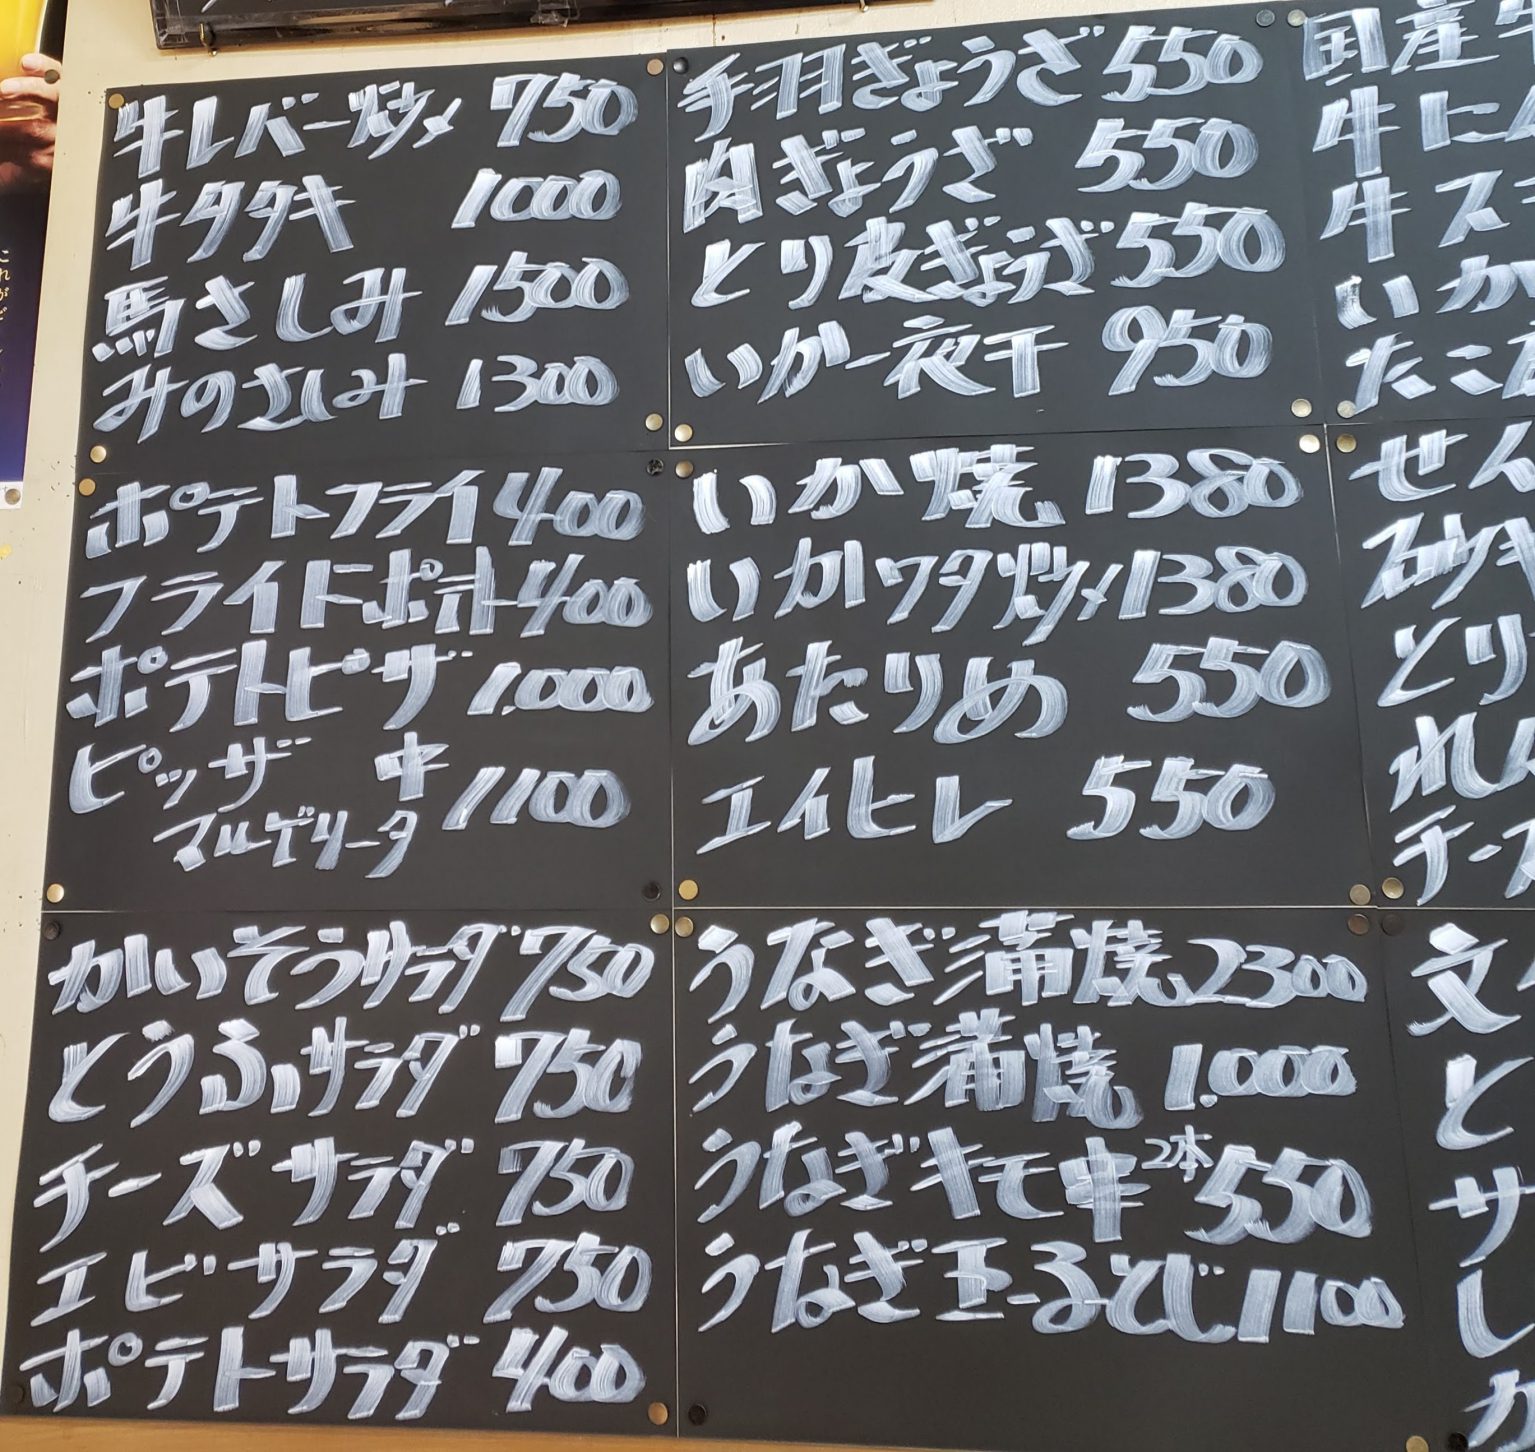 牛レバー炒メ 750
牛タタキ 1000
馬さしみ 1500
みのさしみ 1300
手羽ぎょうざ 550
肉ぎょうざ 550
とり皮ぎょうざ 550
いか一夜干 950
国産
牛に
牛ス
いか
たこ
ポテトフライ 400
フライドポテト 400
ポテトピザ 1.000
ピッザ 中 1100
マルゲリータ
いか焼 1380
いかワタ炒メ 1380
あたりめ 550
エイヒレ 550
せん
砂ギ
とり
れん
チーズ
かいそうサラダ 750
とうふサラダ 750
チーズサラダ 750
エビサラダ 750
ポテトサラダ 400
うなぎ蒲焼 2300
うなぎ蒲焼 1.000
うなぎキモ串 2本 550
うなぎ玉子とじ 1100
文
と
サ
し
カ